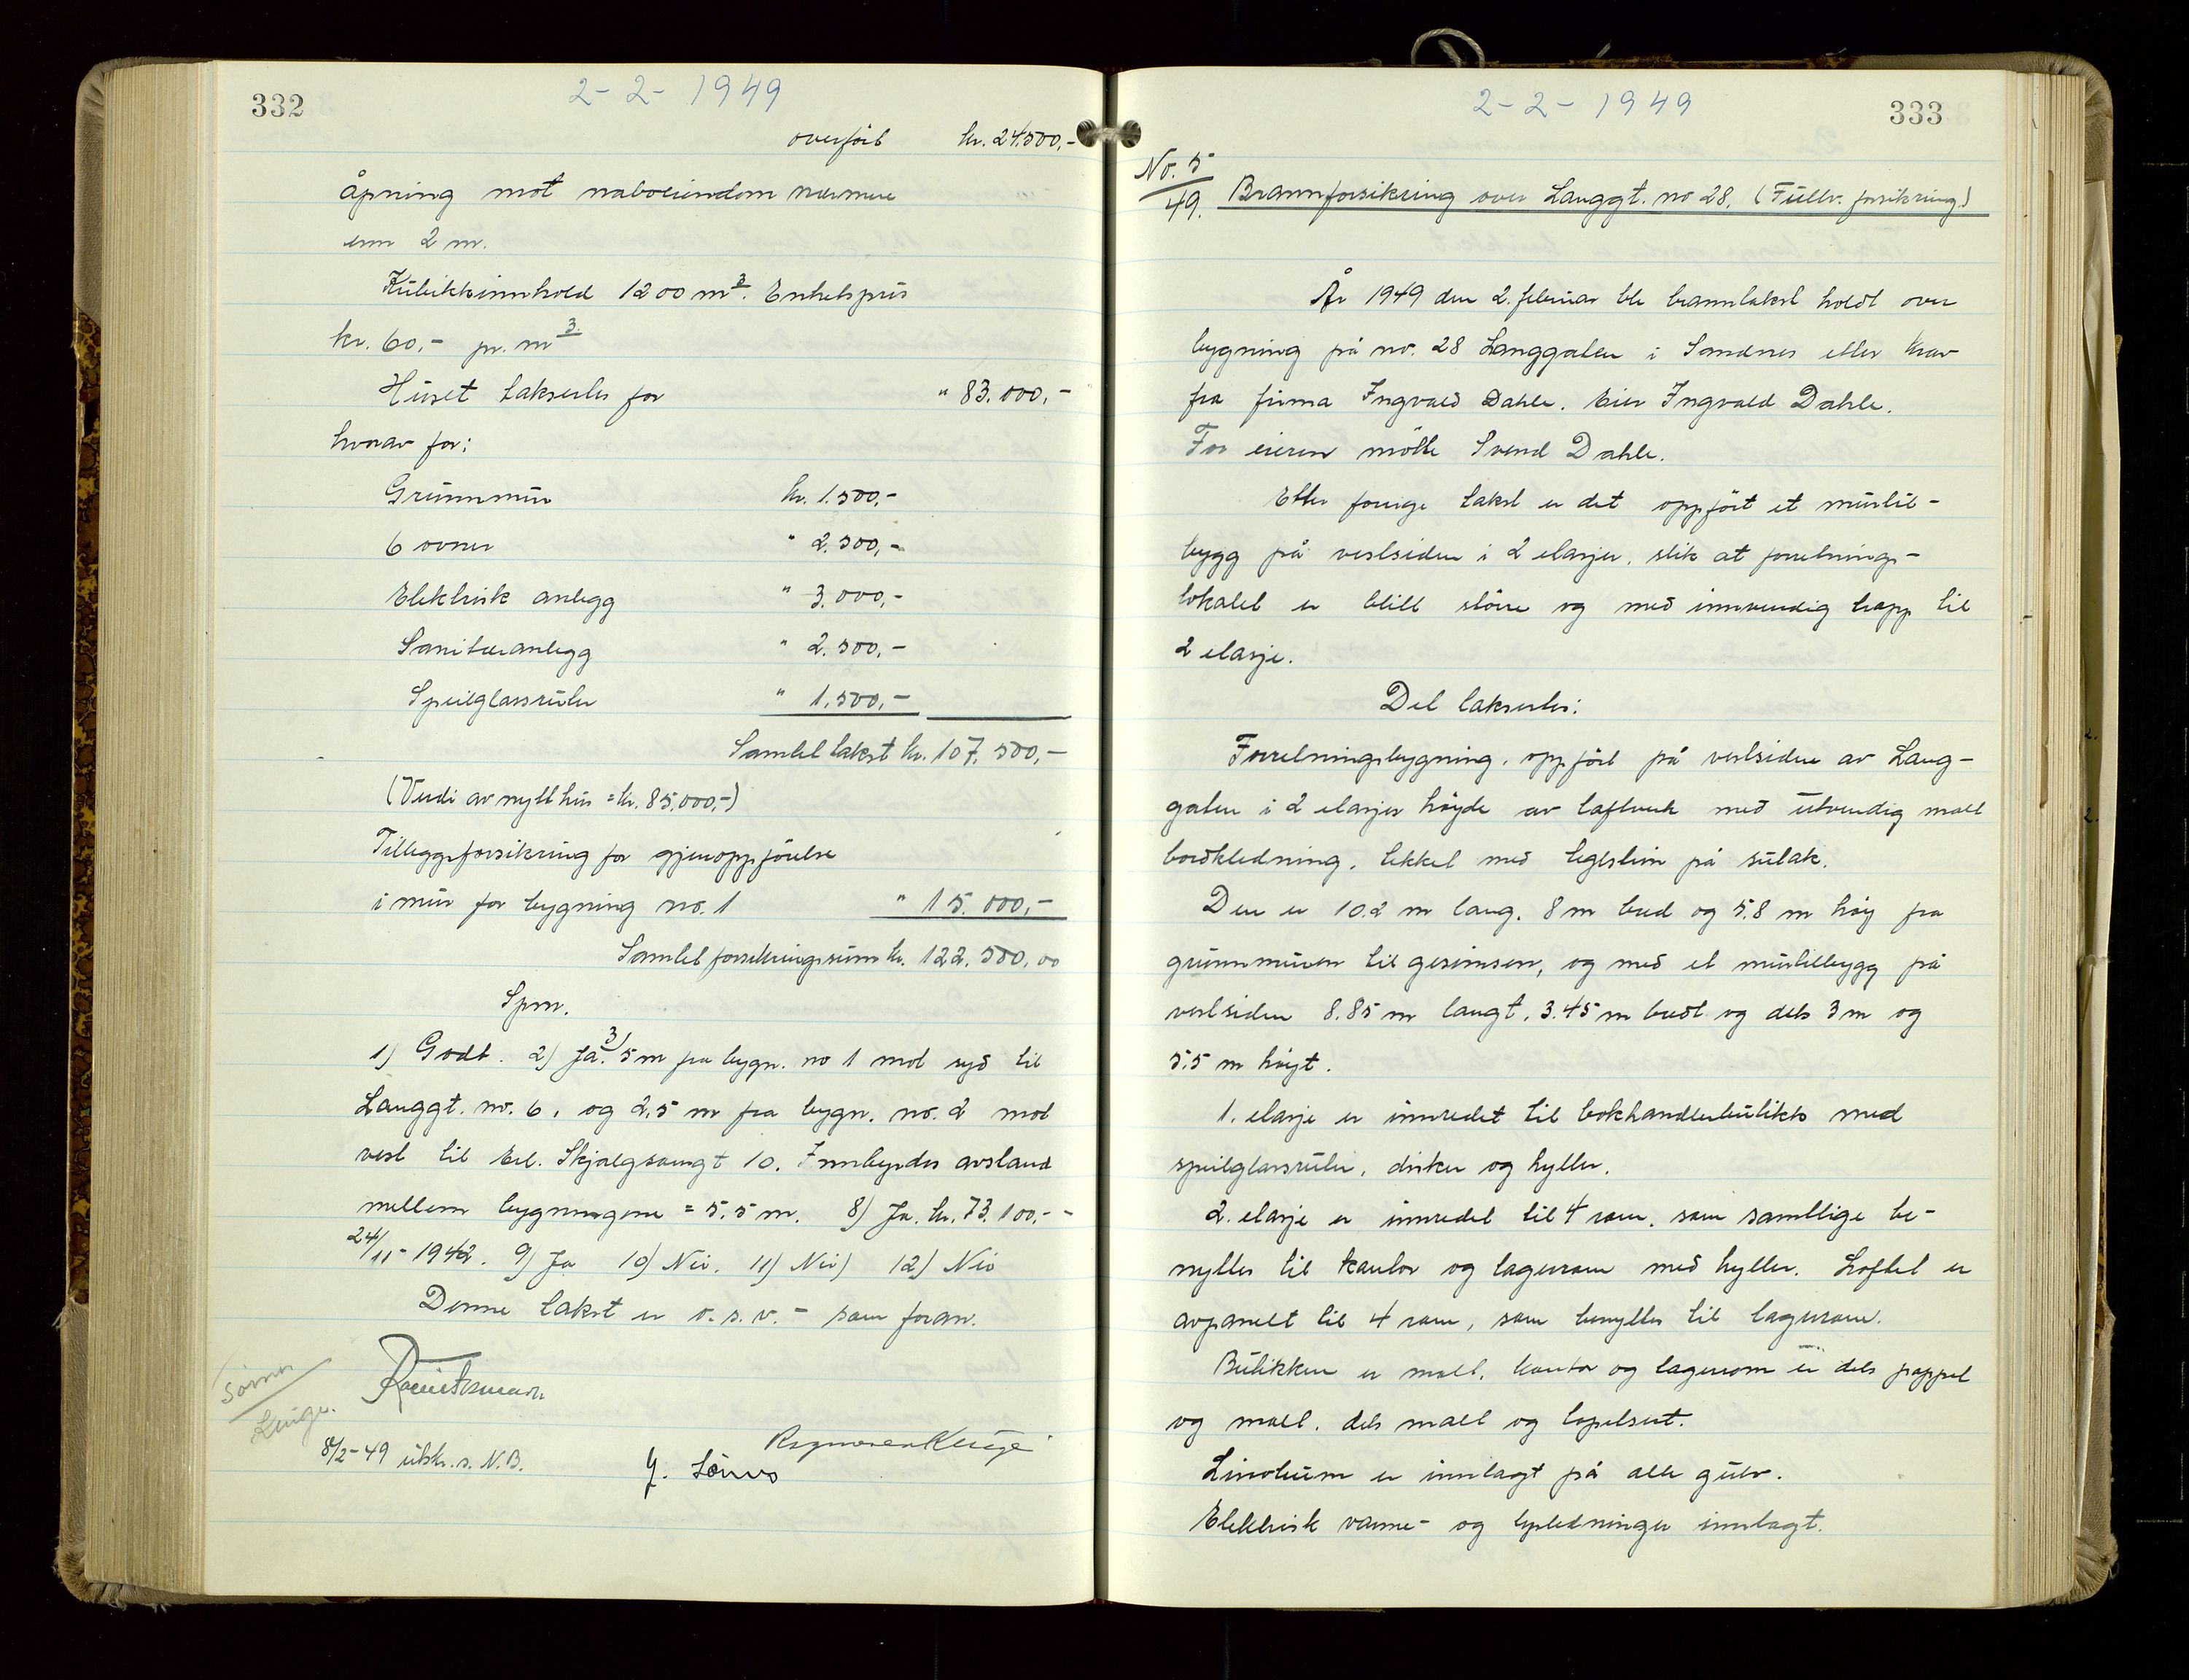 332
2-2-1949
overført kr. 24.500,-
åpning mot naboeiendom nærmere
enn 2 m.
Kubikkinnhold 1200 m³. Enhetspris
kr. 60,- pr. m³.
Huset takseres for " 83.000,-
hvorav for:
Grunnmur kr. 1.500,-
6 ovner " 2.500,-
Elektrisk anlegg " 3.000,-
Sanitæranlegg " 2.500,-
Speilglassruter " 1.500,-
Samlet takst kr. 107.500,-
(Verdi av nytt hus = kr. 85.000,-)
Tilleggsforsikring for gjenoppførelse
i mur for bygning no. 1 " 15.000,-
Samlet forsikringssum kr. 122.500,00
Spm.
1) Godt. 2) Ja. 3) 5 m fra bygn. no 1 mot syd til
Langgt. no. 6, og 2,5 m fra bygn. no. 2 mot
vest til Erl. Skjalgsonsgt 10. Innbyrdes avstand
mellem bygningene = 5,5 m. 8) Ja. kr. 73.100,-
24/11-1942. 9) Ja 10) Nei. 11) Nei) 12) Nei
Denne takst er o.s.v. - som foran.
Sørno
Kluge.
Ragnvald Kluge
8/2-49 utskr. s. N.B.
Y. Sørno
2-2-1949
333
No. 5
49. Brannforsikring over Langgt. no 28. (Fullv. forsikring)
År 1949 den 2. februar ble branntakst holdt over
bygning på no. 28 Langgaten i Sandnes etter krav
fra firma Ingvald Dahle. Eier Ingvald Dahle.
For eieren møtte Svend Dahle.
Etter forrige takst er det oppført et murtil-
bygg på vestsiden i 2 etasjer, slik at forretnings-
lokalet er blitt større og med innvendig trapp til
2 etasje.
Det takseres:
Forretningsbygning, oppført på vestsiden av Lang-
gaten i 2 etasjer høyde av laftverk med utvendig malt
bordkledning, tekket med teglstein på sutak.
Den er 10.2 m lang, 8 m bred og 5.8 m høy fra
grunnmuren til gesimsen, og med et murtilbygg på
vestsiden 8.85 m langt, 3.45 m bredt og dels 3 m og
5.5 m høyt.
1. etasje er innredet til bokhandlerbutikk med
speilglassruter, disker og hyller.
2. etasje er innredet til 4 rom, som samtlige be-
nyttes til kontor og lagerrom med hyller. Loftet er
avpanelt til 4 rom, som benyttes til lagerrom.
Butikken er malt, kontor og lagerrom er dels pappet
og malt, dels malt og tapetsert.
Linoleum er innlagt på alle gulv.
Elektrisk varme- og lysledninger innlagt.